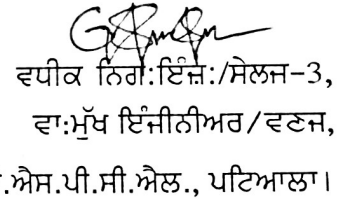 ਵਧੀਕ ਨਿਗ:ਇੰਜ:/ਸੇਲਜ-3,
ਵਾ:ਮੁੱਖ ਇੰਜੀਨੀਅਰ/ਵਣਜ,
.ਐਸ.ਪੀ.ਸੀ.ਐਲ., ਪਟਿਆਲਾ।